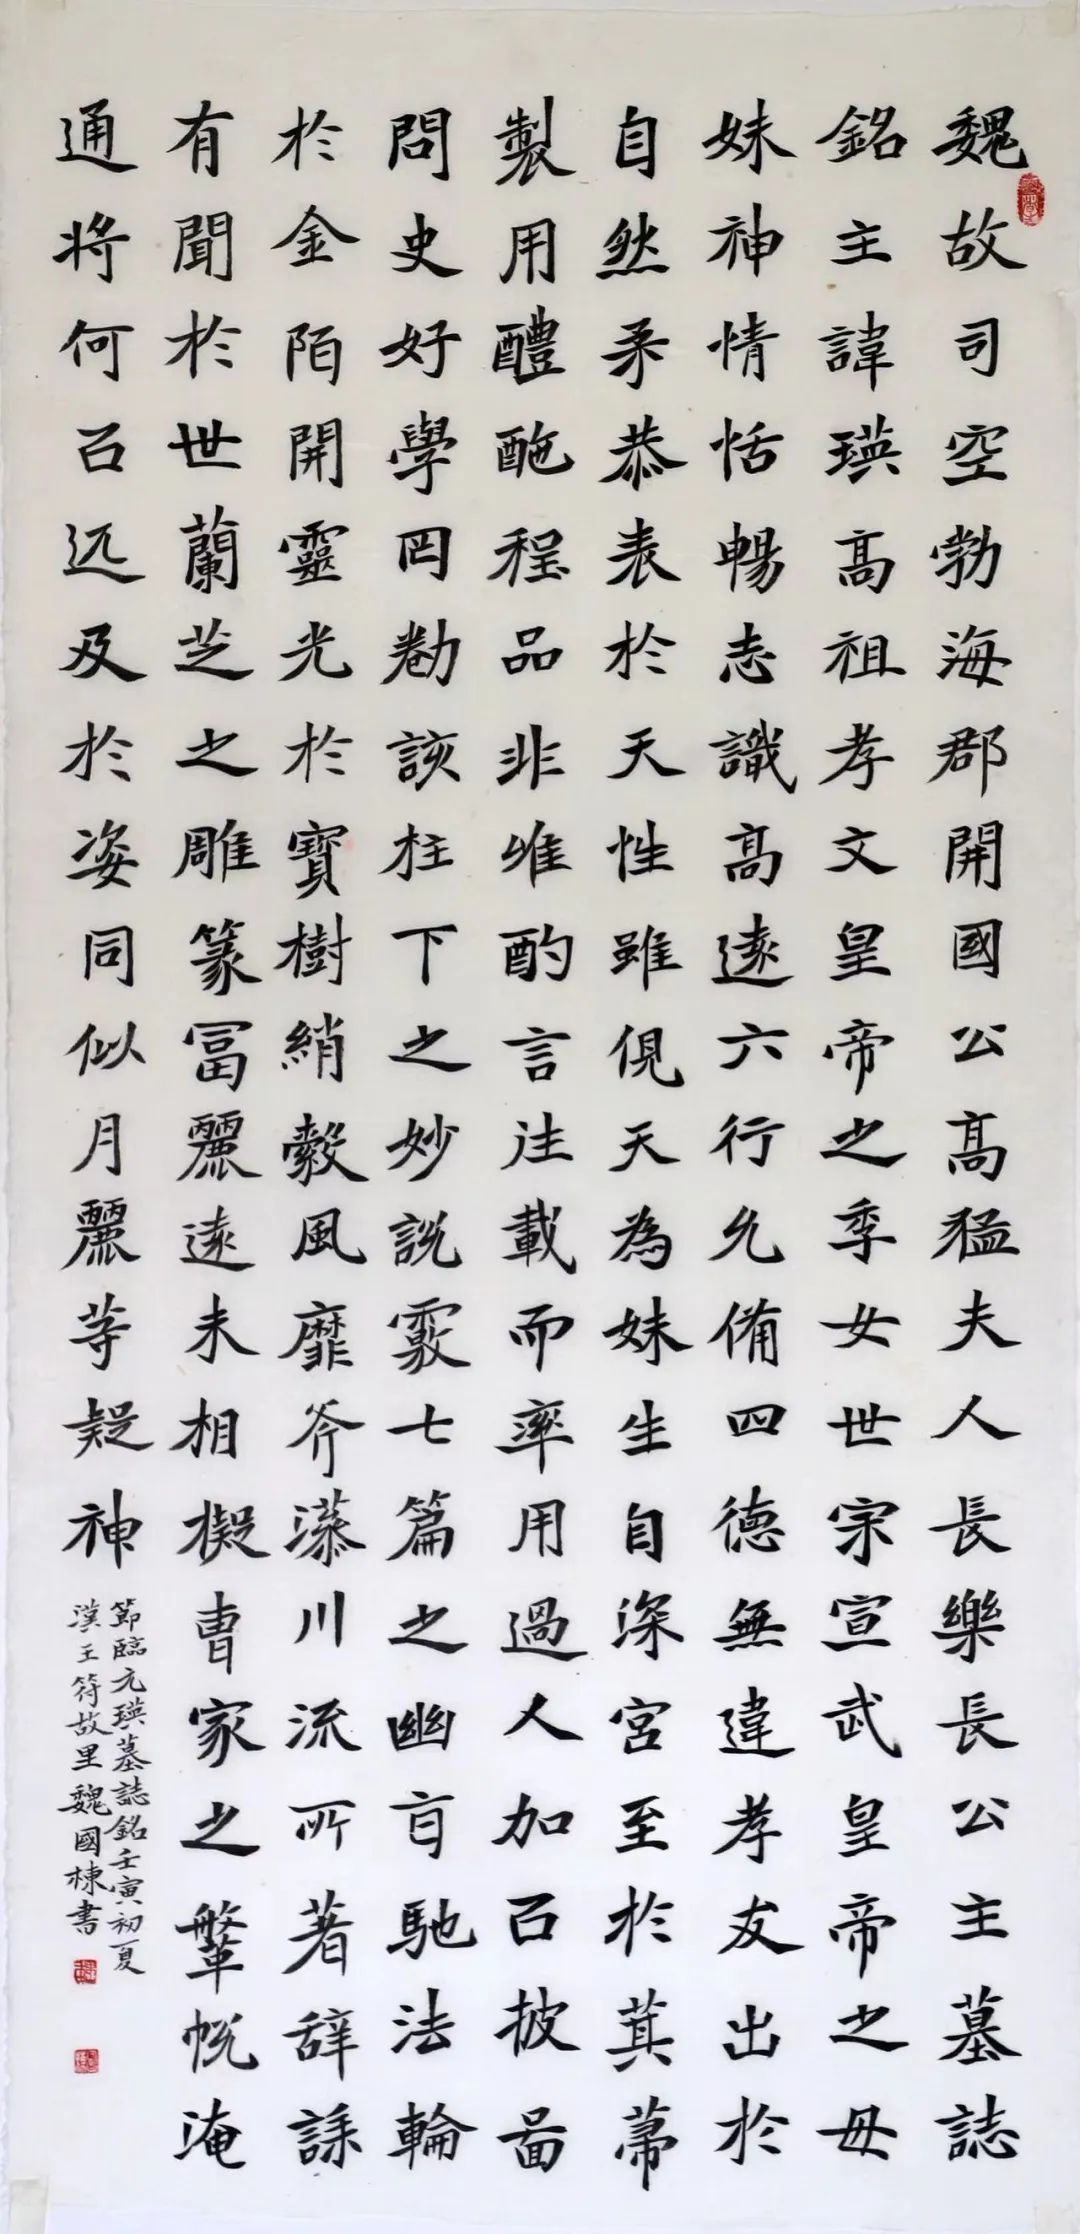 魏故司空勃海郡開國公髙猛夫人長樂長公主墓誌
銘主諱瑛髙祖孝文皇帝之季女世宗宣武皇帝之母
妹神情恬暢志識髙遠六行允備四德無違孝友出於
自然柔恭表於天性雖俔天為妹生自深宮至於萁蒂
製用醴酏程品非唯酌言往載而率用過人加㠯披啚
問史好學罔勌該柱下之妙説覈七篇之幽旨馳法輪
於金陌開靈光於寶樹綃縠風靡斧藻川流所著辞誄
有聞於世蘭芝之雕篆冨麗遠未相擬曺家之鞶帨淹
通將何㠯远及於姿同似月麗等疑神
節臨元瑛墓誌銘壬寅初夏
漢王符故里魏國棟書